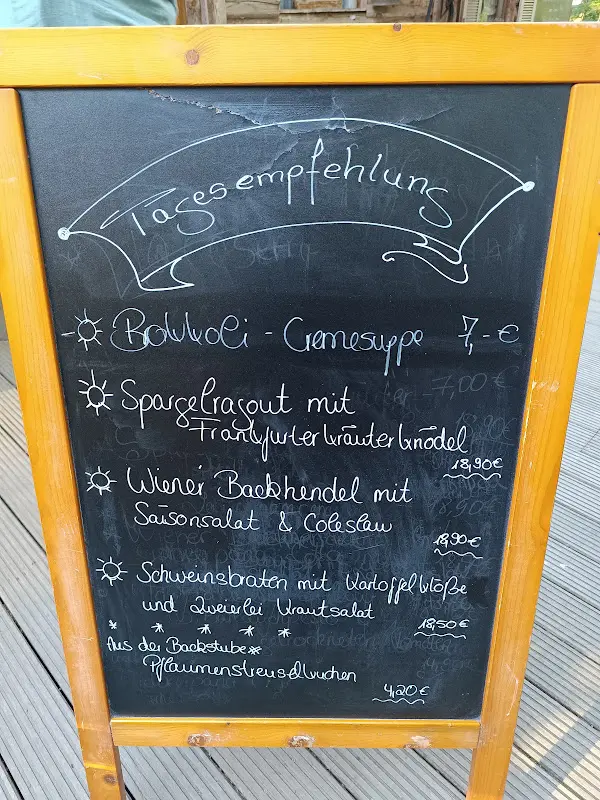 Tagesempfehlung
Brokkoli - Cremesuppe 7,- €
Spargelragout mit
Frankfurterkräuterknödel
18,90 €
Wiener Backhendel mit
Saisonsalat & Coleslaw
18,90 €
Schweinsbraten mit Kartoffelklöße
und Zweierlei Krautsalat
18,50 €
Aus der Backstube
Pflaumenstreuselkuchen
4,20 €